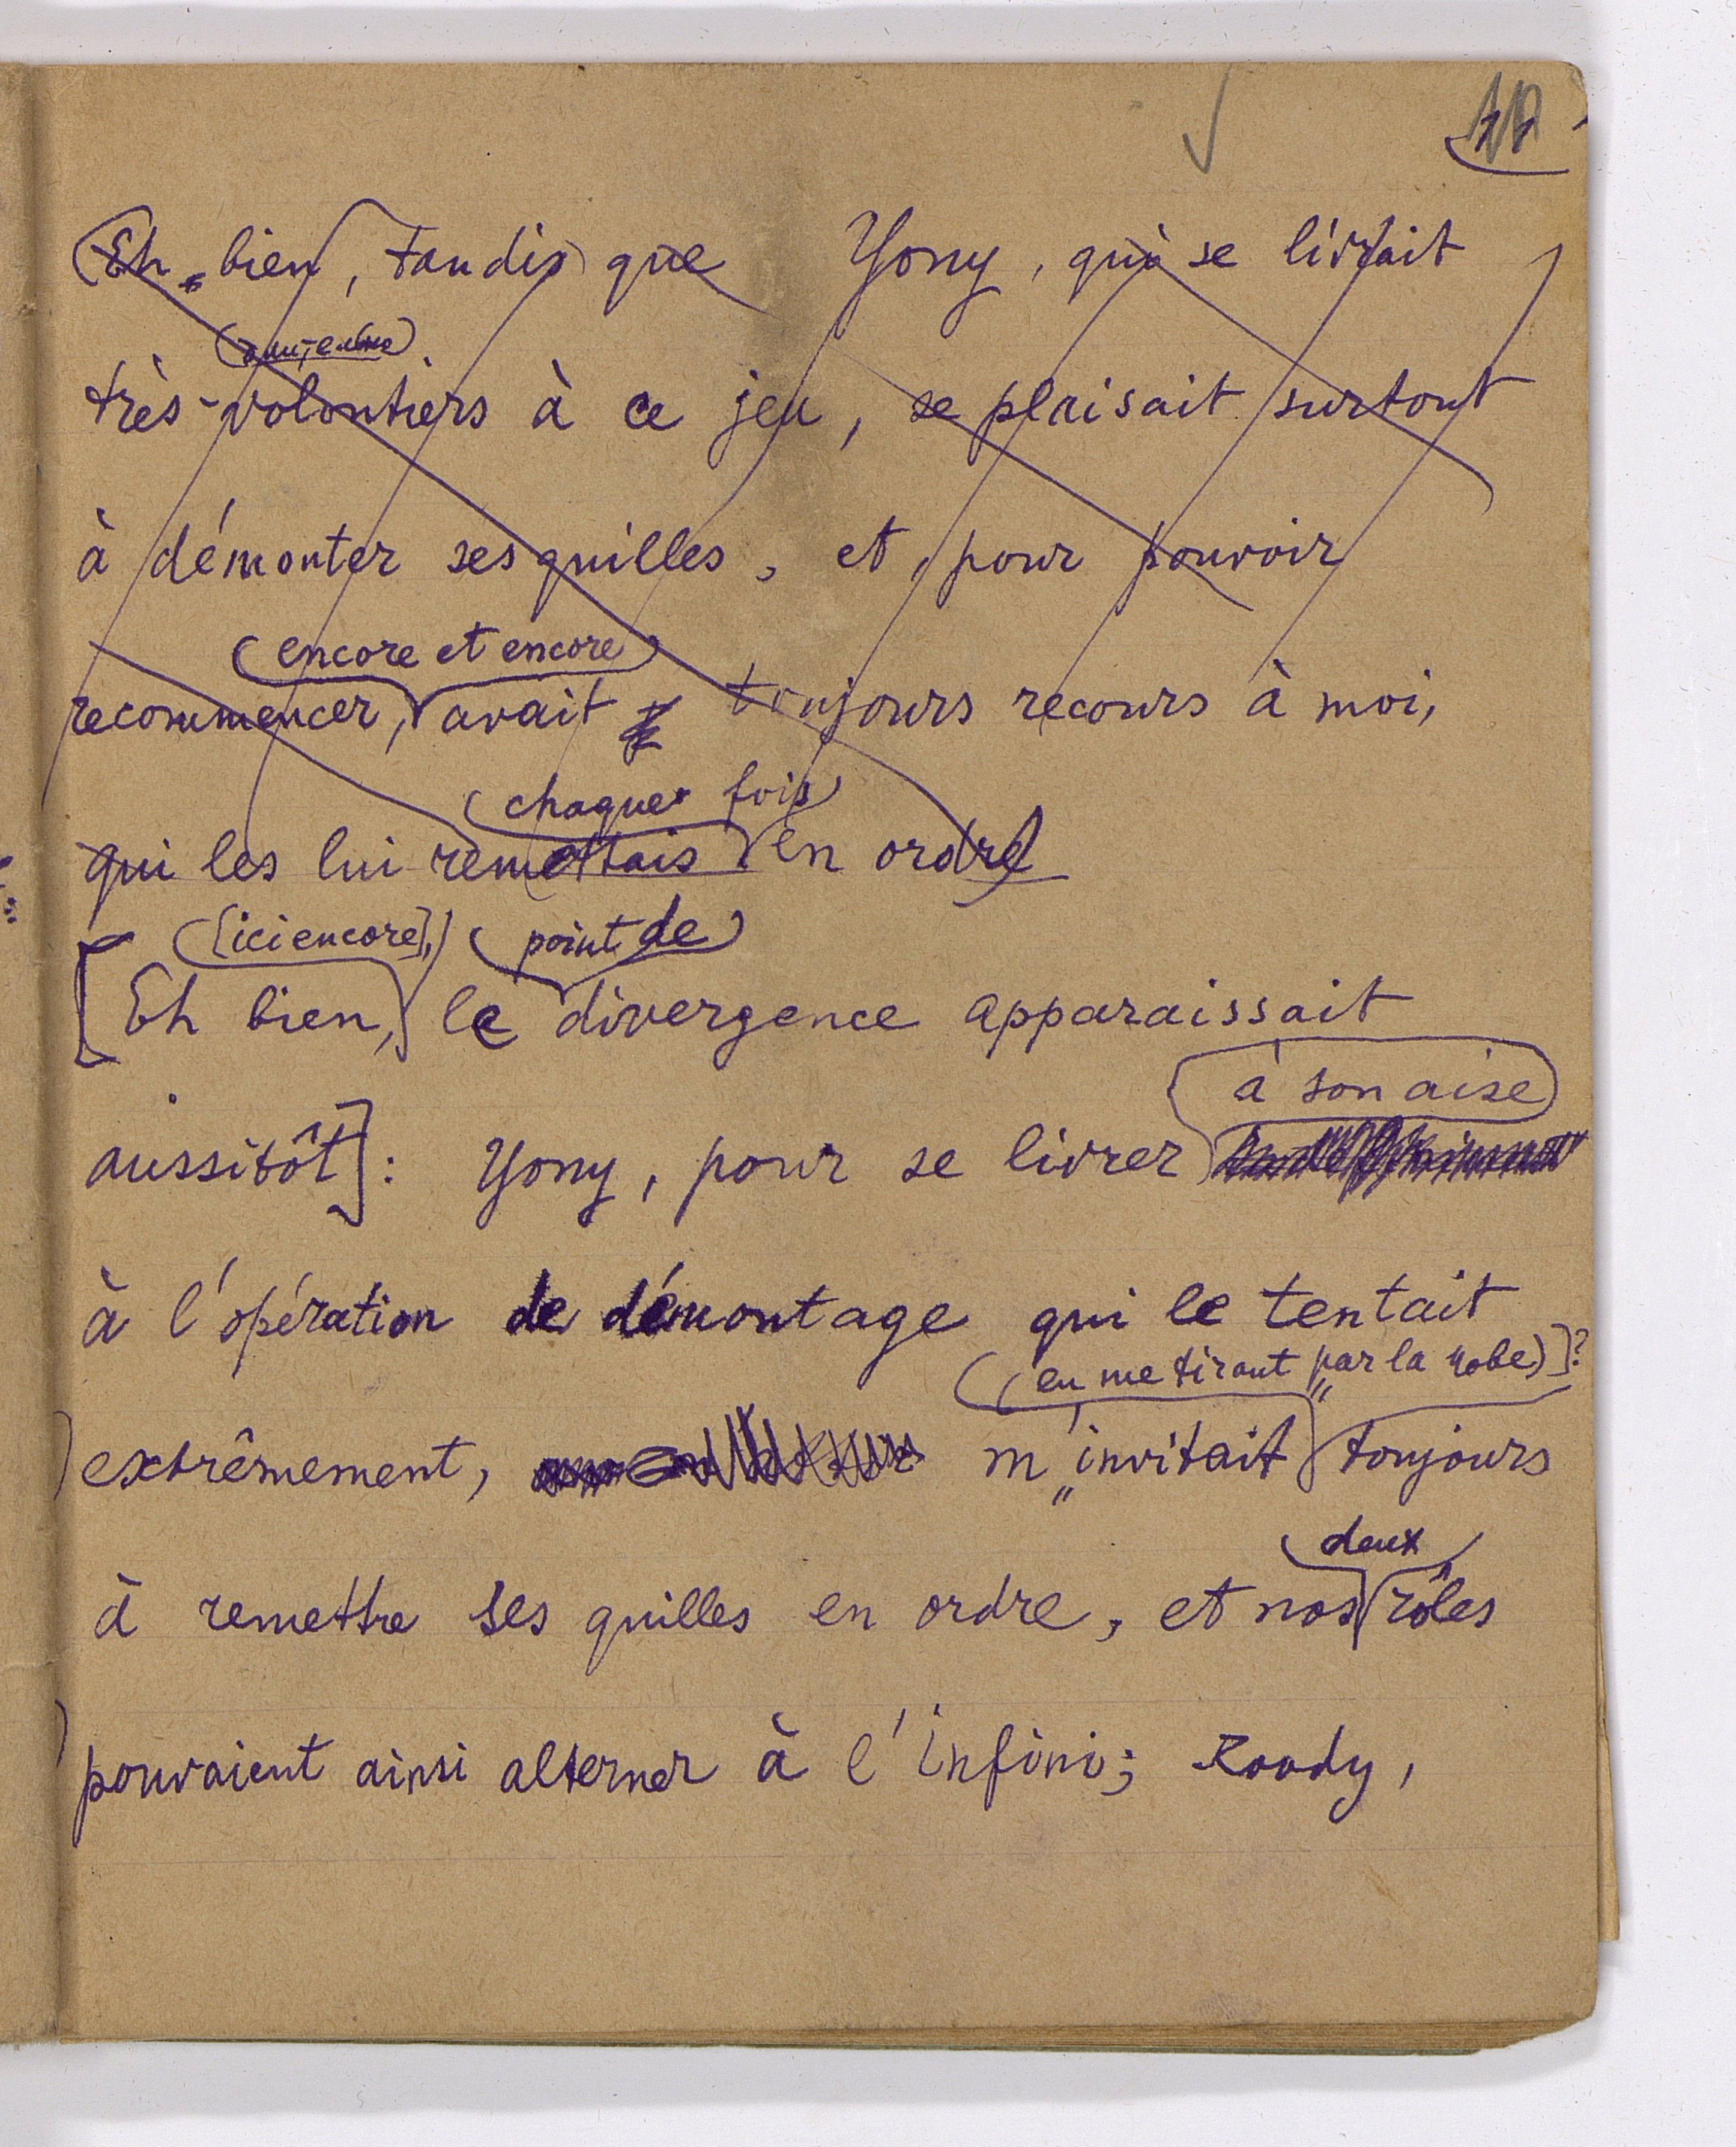 Eh bien, tandis que Yony, qui se livrait
très-volontiers à ce jeu, se plaisait surtout
à démonter ses quilles, et, pour pouvoir
encore et encore
recommencer, avait toujours recours à moi,
chaque fois
qui les lui remettais en ordre
[ici encore], point de
[Eh bien, le divergence apparaissait
à son aise
aussitôt]: Yony, pour se livrer
à l'opération de démontage qui le tentait
(en me tirant par la robe)]?
extrêmement, m'invitait toujours
deux
à remettre ses quilles en ordre, et nos rôles
pouvaient ainsi alterner à l'infini; Roody,